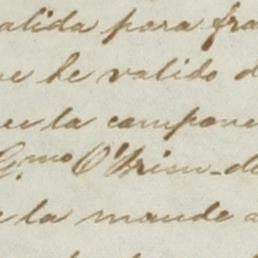 alida para fra
ue he valido d
uela compone
G.mo O'Brien_de
e la mande a